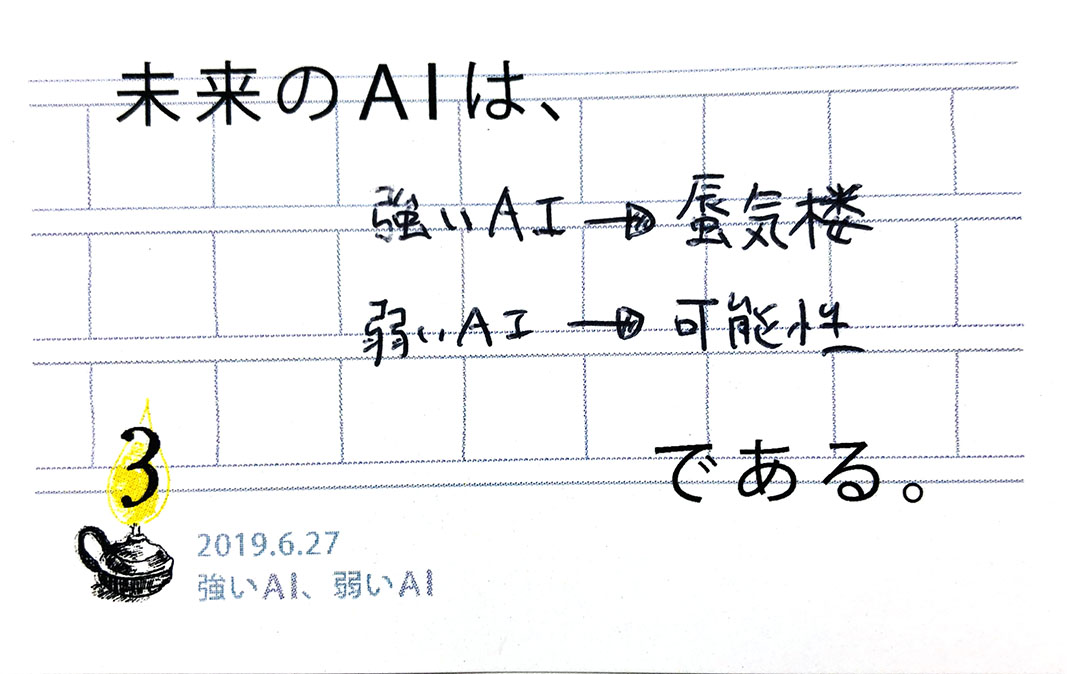 未来のAIは、
強いAI→蜃気楼
弱いAI→可能性
である。
3
2019.6.27
強いAI、弱いAI